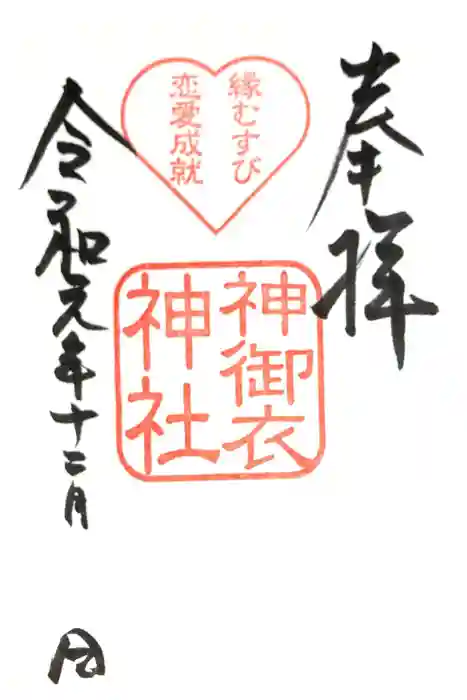 奉拝
縁むすび
恋愛成就
神御衣
神社
令和元年十二月